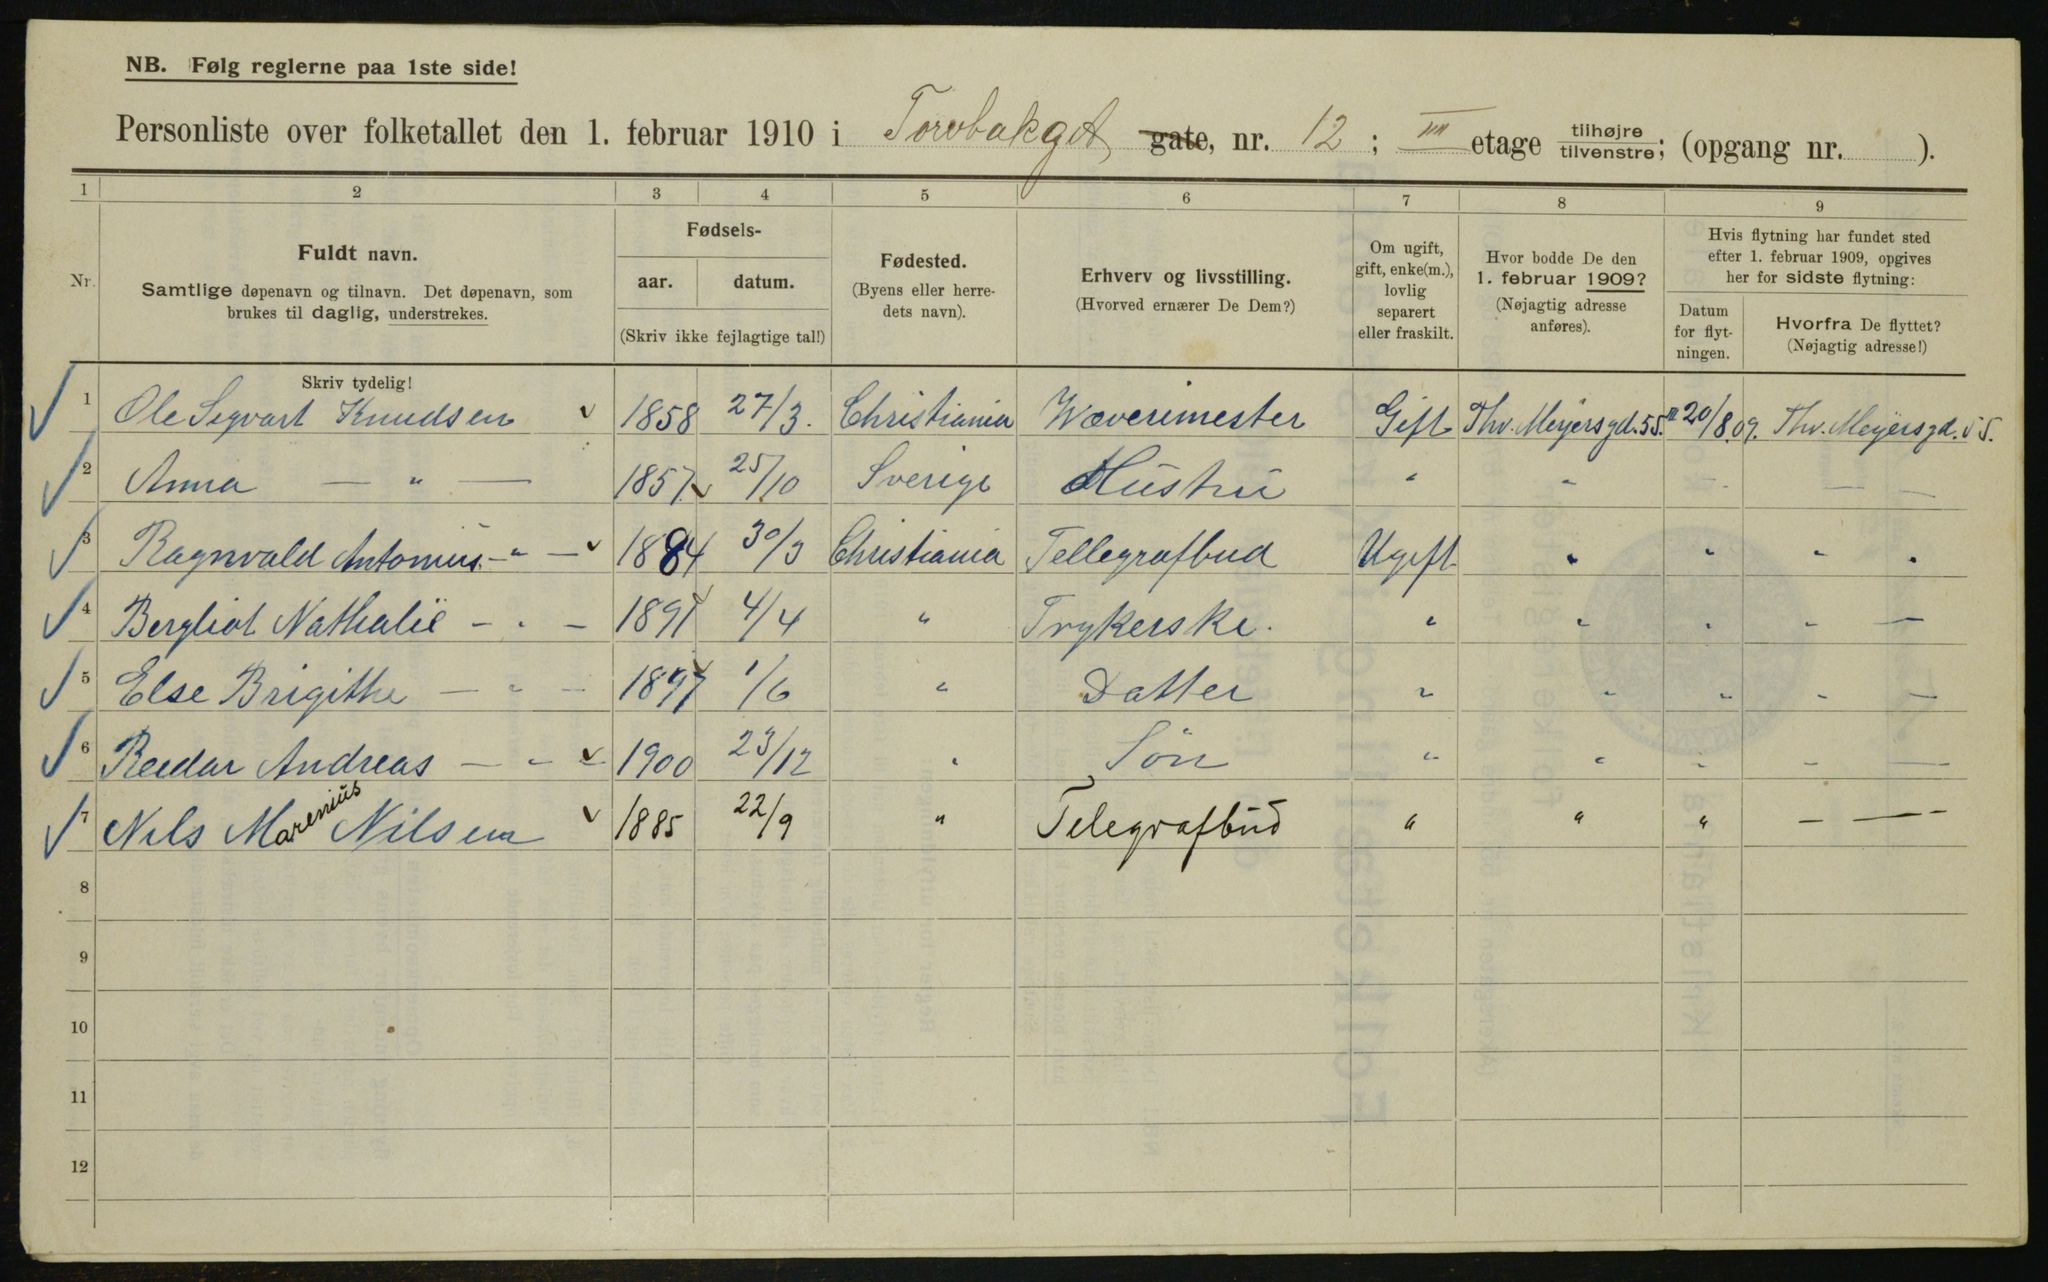 NB. Følg reglerne paa 1ste side!
Personliste over folketallet den 1. februar 1910 i Torvbakgt gate, nr. 12 ; III etage tilhøjre tilvenstre; (opgang nr. ).
1 2 3 4 5 6 7 8 9
Nr. Fuldt navn. Samtlige døpenavn og tilnavn. Det døpenavn, som brukes til daglig, understrekes.
Fødsels- aar. datum. (Skriv ikke fejlagtige tal!)
Fødested. (Byens eller herredets navn).
Erhverv og livsstilling. (Hvorved ernærer De Dem?)
Om ugift, gift, enke(m.), lovlig separert eller fraskilt.
Hvor bodde De den 1. februar 1909? (Nøjagtig adresse anføres).
Hvis flytning har fundet sted efter 1. februar 1909, opgives her for sidste flytning:
Datum for flytningen.
Hvorfra De flyttet? (Nøjagtig adresse!)
Skriv tydelig!
1 Ole Sigvart Knudsen 1858 27/3. Christiania Wæverimester Gift Thv. Meyersgd. 55. III 20/8 09. Thv. Meyersgd. 55.
2 Anna — " — 1857 25/10 Sverige Hustru " " " — —
3 Ragnvald Antonius - " — 1884 30/3 Christiania Tellegrafbud Ugift " " " "
4 Bergliot Nathalie — " — 1891 4/4 " Trykerske. " " " " —
5 Else Brigitte — " — 1897 1/6 " Datter " " " " —
6 Reidar Andreas — " — 1900 23/12 " Sön " " " — —
7 Nils Marenius Nilsen 1885 22/9 " Telegrafbud " " " — —
8
9
10
11
12